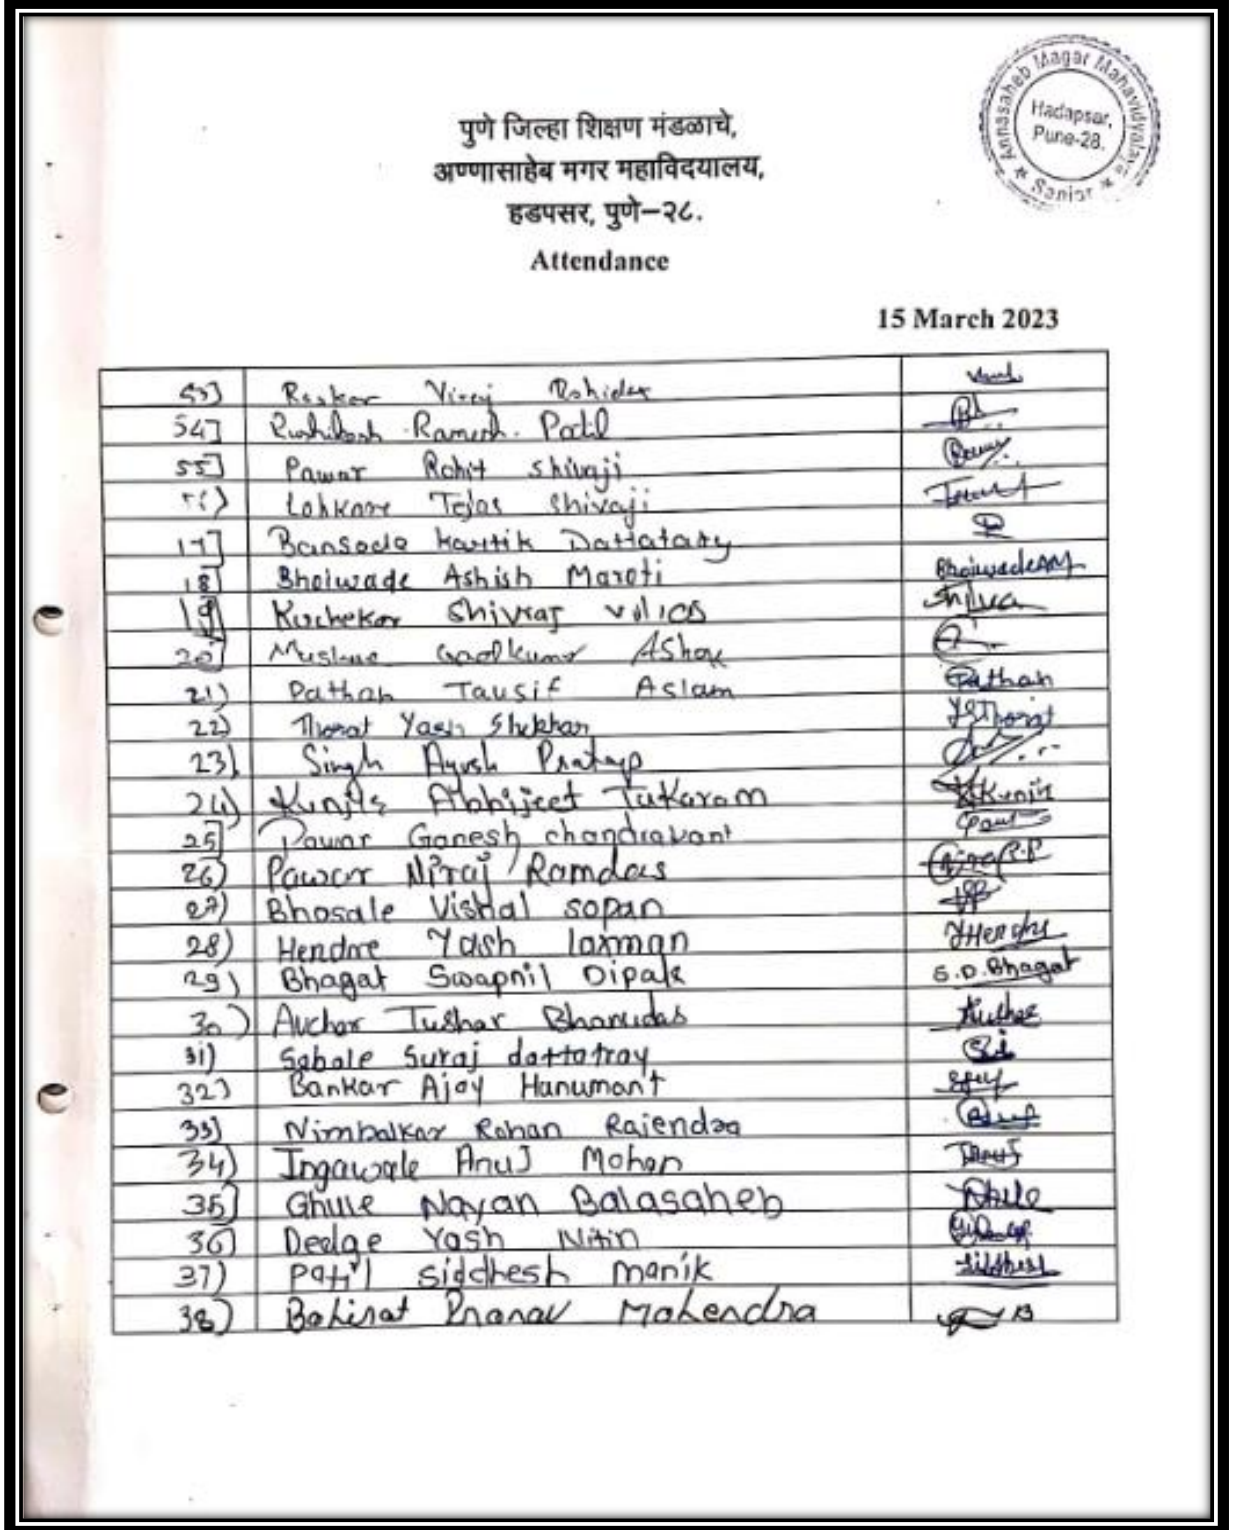 Annasaheb Magar Mahavidyalaya
Hadapsar,
Pune-28.
पुणे जिल्हा शिक्षण मंडळाचे,
अण्णासाहेब मगर महाविदयालय,
हडपसर, पुणे–२८.
Attendance
15 March 2023
53] Raskar Viraj
54] Rushikesh Ramesh Patil
55] Pawar Rohit Shivaji
Lohkare Tejas Shivaji
17] Bansode Kartik Dattatary
18] Bhoiwade Ashish Maroti BhoiwadeAM
19] Kuchekar Shivraj
20] Ashok
21) Pathan Tausif Aslam Pathan
22) Thorat Yash Shekhar YSThorat
23) Singh Ayush Pratap
24) Kunjir Abhijeet Tukaram Kunjir
25] Pawar Ganesh chandrakant
26) Pawar Niraj Ramdas
27) Bhosale Vishal sopan
28) Hendre Yash laxman YHendre
29) Bhagat Swapnil Dipak S.D.Bhagat
30) Avchar Tushar Bhanudas
31) Sabale Suraj dattatray
32) Bankar Ajay Hanumant
33) Nimbalkar Rohan Rajendra
34) Ingawale Anuj Mohan Anuj
35) Ghule Nayan Balasaheb
36) Deelge Yash Nitin
37) Patil siddhesh manik
38) Bahirat Pranav Mahendra